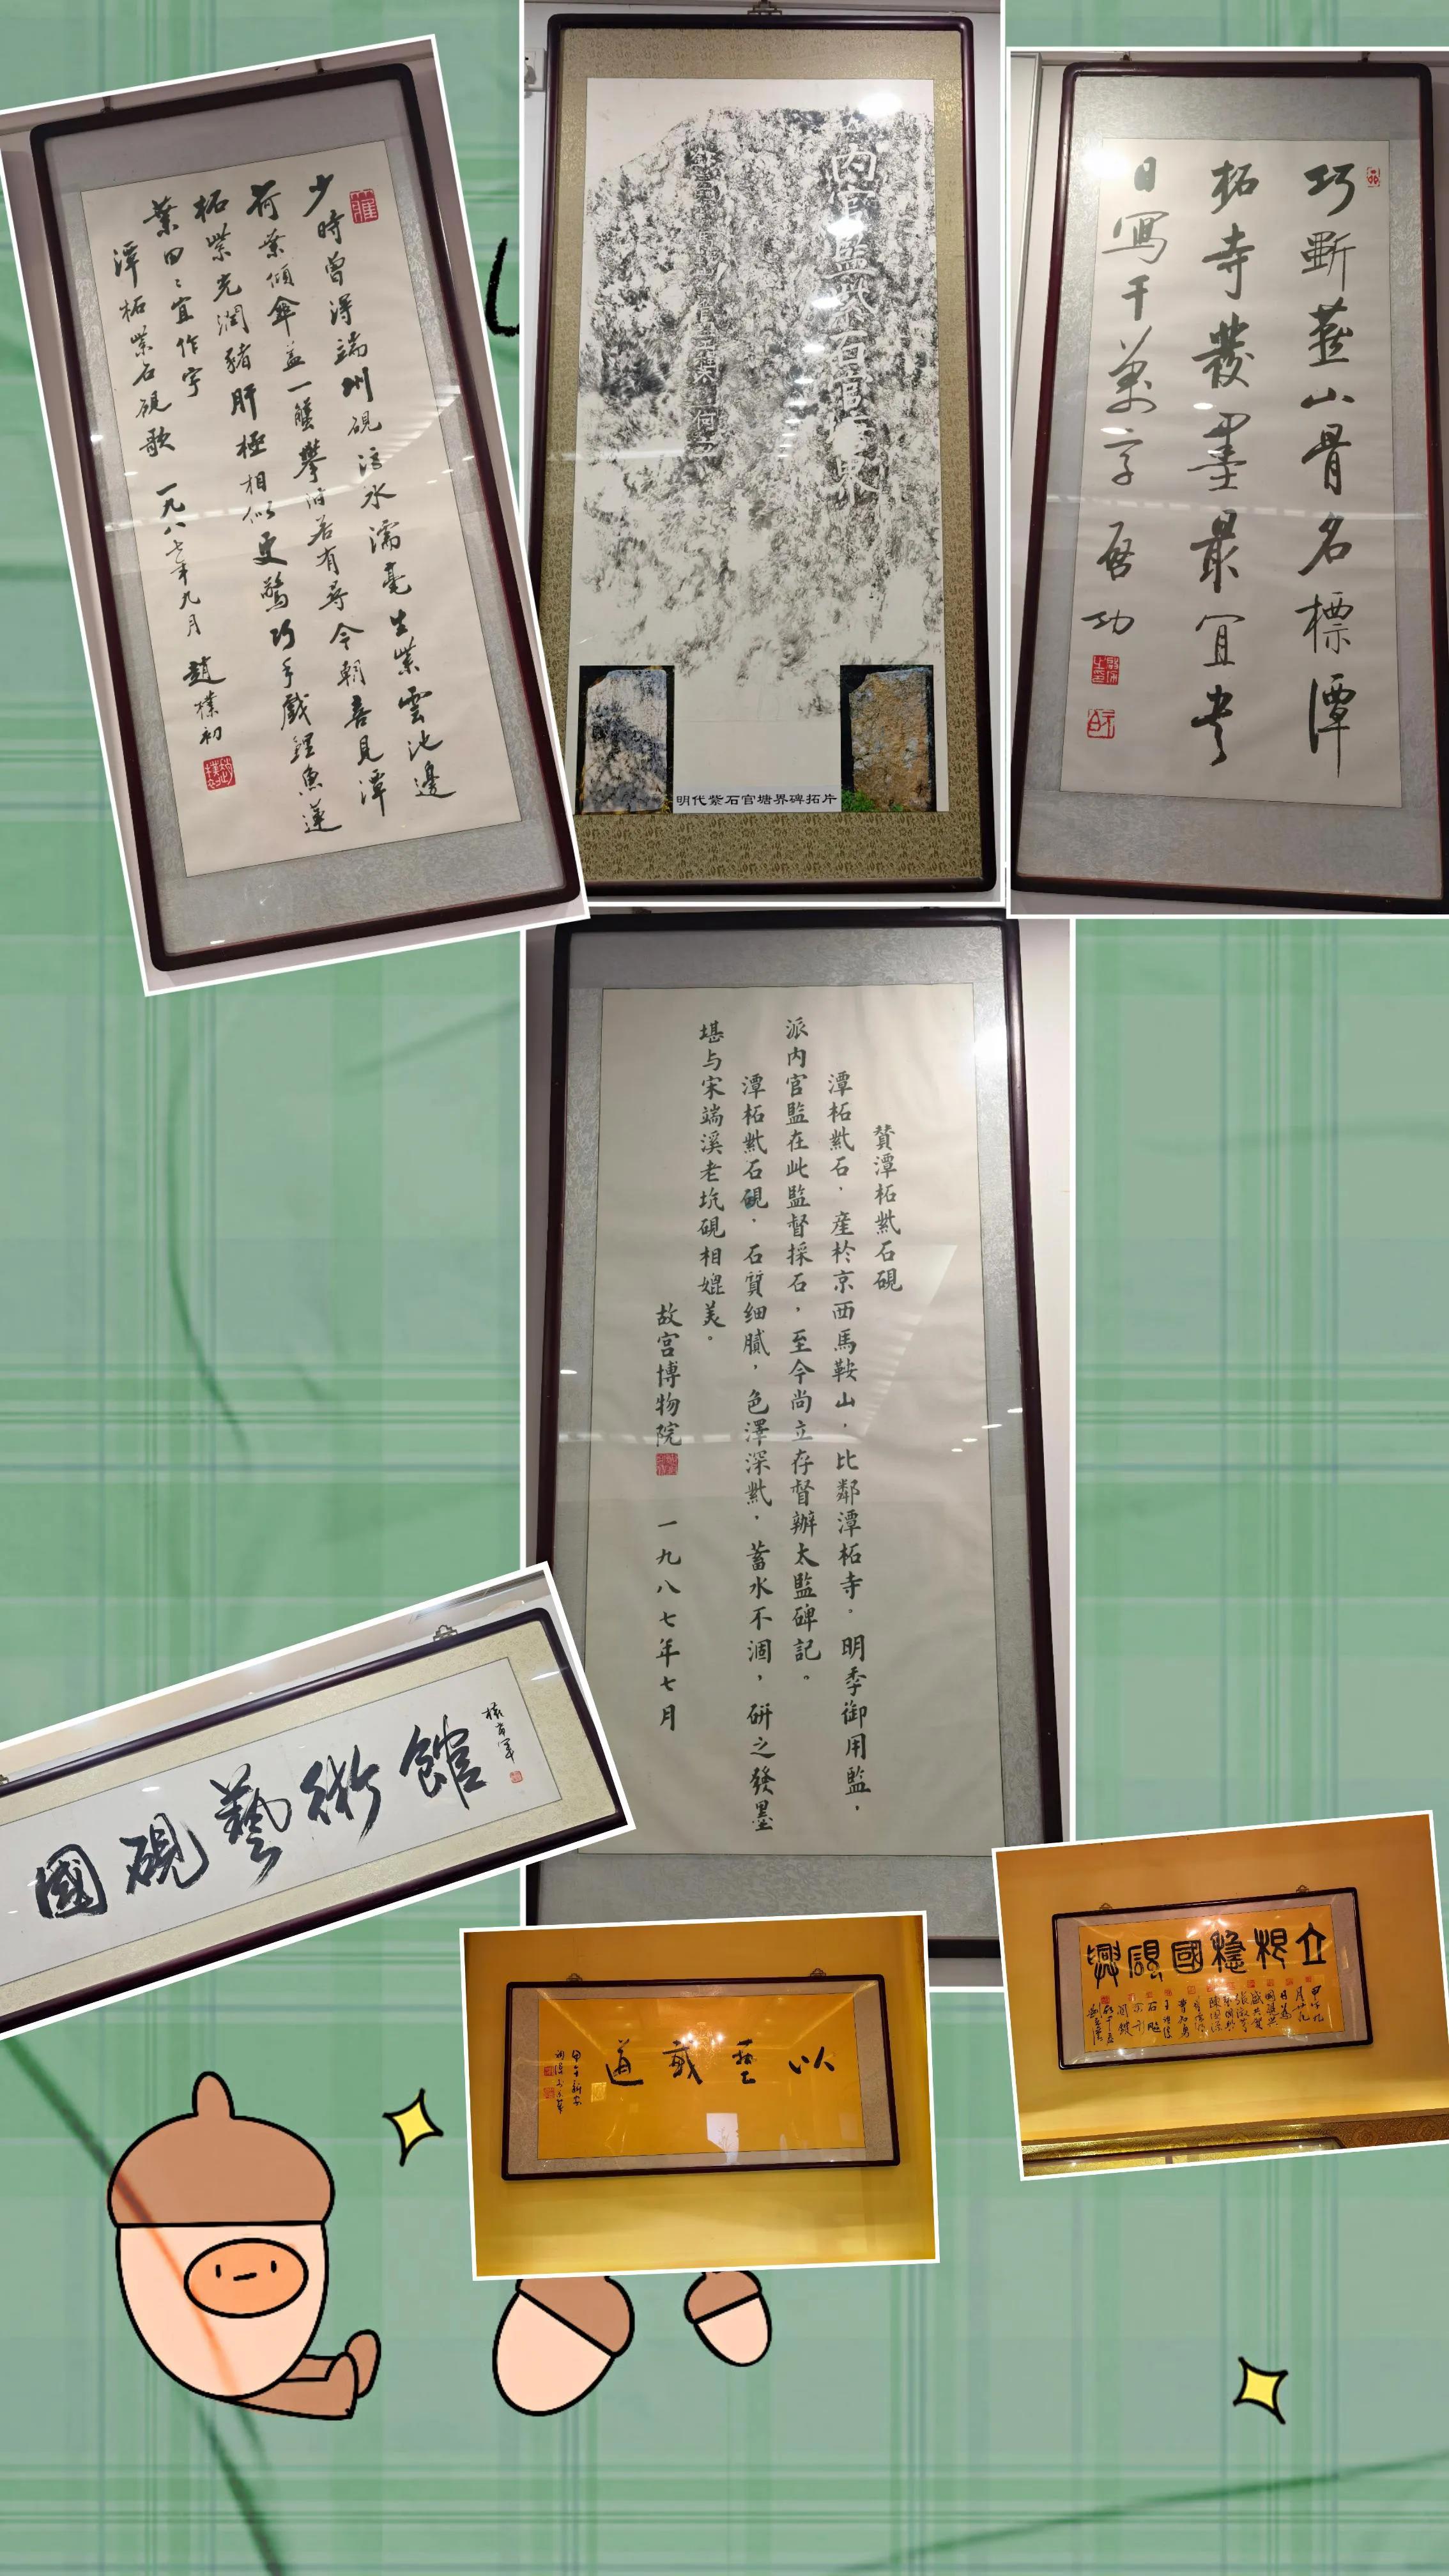 少時曾得端州硯滴水濡毫生紫雲池邊
荷葉傾傘蓋一螯擎若有尋今朝喜見潭
柘紫光潤豬肝極相似更驚巧手戲鯉魚蓮
葉田田宜作字
潭柘紫石硯歌 一九八七年九月 趙樸初
內官監紫石官塘界東
明代紫石官塘界碑拓片
巧斲藍山骨名標潭
柘寺發墨最宜書
日寫千萬字 啓功
贊潭柘紫石硯
潭柘紫石，產於京西馬鞍山，比鄰潭柘寺。明季御用監，
派內官監在此監督採石，至今尚立存督辦太監碑記。
潭柘紫石硯，石質细膩，色澤深紫，蓄水不涸，研之發墨
堪与宋端溪老坑硯相媲美。
故宮博物院 一九八七年七月
國硯藝術館
以藝載道
立根穩國硯興